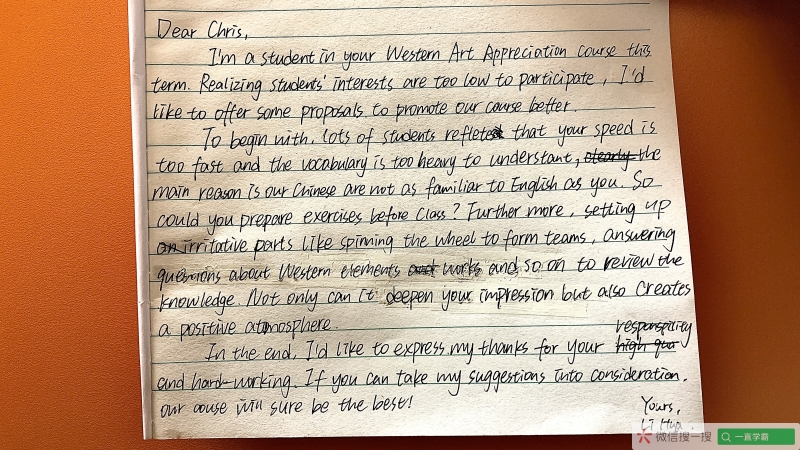 Dear Chris,
I'm a student in your Western Art Appreciation course this
term. Realizing students' interests are too low to participate, I'd
like to offer some proposals to promote our course better.
To begin with, lots of students reflete that your speed is
too fast and the vocabulary is too heavy to understand, clearly the
main reason is our Chinese are not as familiar to English as you. So
could you prepare exercises before class? Further more, setting up
an irritative parts like spinning the wheel to form teams, answering
questions about Western elements and works and so on to review the
knowledge. Not only can it deepen your impression but also creates
a positive atmosphere.
responspility
In the end, I'd like to express my thanks for your high qua
and hard-working. If you can take my suggestions into consideration,
our couse will sure be the best!
Yours,
Li Hua
微信搜一搜 一直学霸